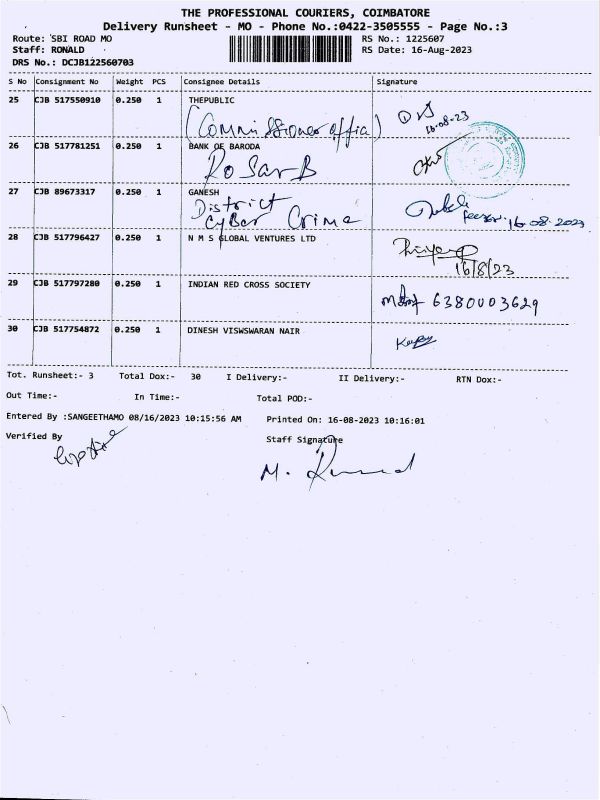 THE PROFESSIONAL COURIERS, COIMBATORE
Delivery Runsheet - MO - Phone No.:0422-3505555 - Page No.:3
Route: SBI ROAD MO RS No.: 1225607
Staff: RONALD RS Date: 16-Aug-2023
DRS No.: DCJB122560703
S No Consignment No Weight PCS Consignee Details Signature
25 CJB 517550910 0.250 1 THEPUBLIC
(Commissioner 16-08-23
26 CJB 517781251 0.250 1 BANK OF BARODA
RoSarB
27 CJB 89673317 0.250 1 GANESH
District
Cyber Crime 16-08-2023
28 CJB 517796427 0.250 1 N M S GLOBAL VENTURES LTD
16/8/23
29 CJB 517797280 0.250 1 INDIAN RED CROSS SOCIETY
6380003629
30 CJB 517754872 0.250 1 DINESH VISWSWARAN NAIR
Tot. Runsheet:- 3 Total Dox:- 30 I Delivery:- II Delivery:- RTN Dox:-
Out Time:- In Time:- Total POD:-
Entered By :SANGEETHAMO 08/16/2023 10:15:56 AM Printed On: 16-08-2023 10:16:01
Verified By Staff Signature
M.